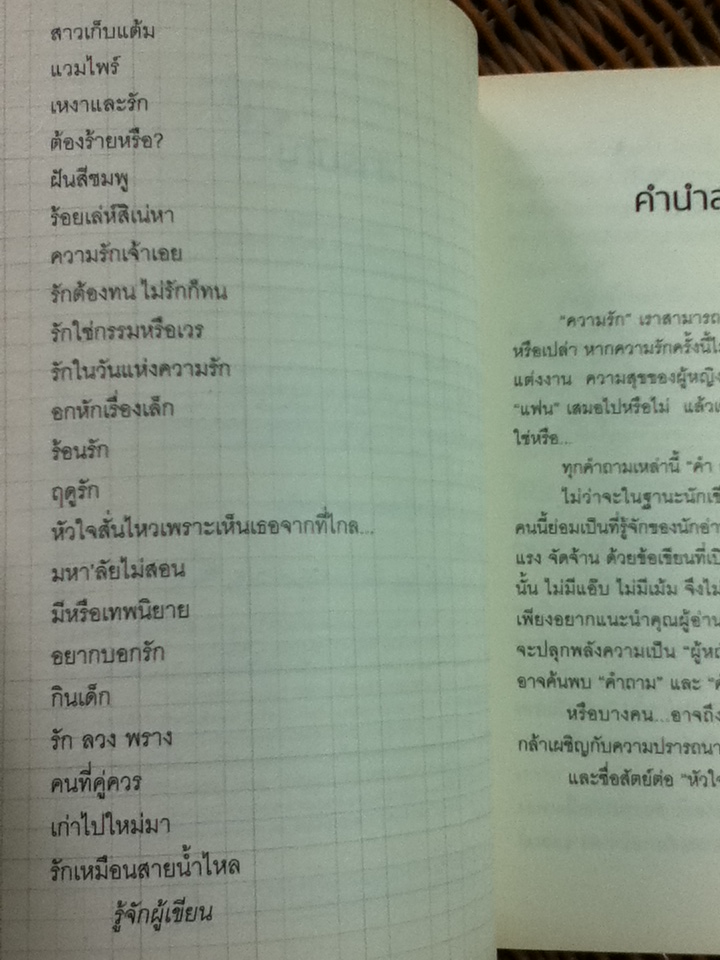 สาวเก็บแต้ม
แวมไพร์
เหงาและรัก
ต้องร้ายหรือ?
ฝันสีชมพู
ร้อยเล่ห์สิเน่หา
ความรักเจ้าเอย
รักต้องทน ไม่รักก็ทน
รักใช่กรรมหรือเวร
รักในวันแห่งความรัก
อกหักเรื่องเล็ก
ร้อนรัก
ฤดูรัก
หัวใจสั่นไหวเพราะเห็นเธอจากที่ไกล...
มหา'ลัยไม่สอน
มีหรือเทพนิยาย
อยากบอกรัก
กินเด็ก
รัก ลวง พราง
คนที่คู่ควร
เก่าไปใหม่มา
รักเหมือนสายน้ำไหล
รู้จักผู้เขียน
คำนำส
"ความรัก" เราสามารถ
หรือเปล่า หากความรักครั้งนี้ไ
แต่งงาน ความสุขของผู้หญิง
"แฟน" เสมอไปหรือไม่ แล้วเ
ใช่หรือ...
ทุกคำถามเหล่านี้ "คำ
ไม่ว่าจะในฐานะนักเขี
คนนี้ย่อมเป็นที่รู้จักของนักอ่า
แรง จัดจ้าน ด้วยข้อเขียนที่เปิ
นั้น ไม่มีแอ๊บ ไม่มีเม้ม จึงไม
เพียงอยากแนะนำคุณผู้อ่าน
จะปลุกพลังความเป็น "ผู้หญ
อาจค้นพบ "คำถาม" และ "ค
หรือบางคน...อาจถึง
กล้าเผชิญกับความปรารถนา
และซื่อสัตย์ต่อ "หัวใจ